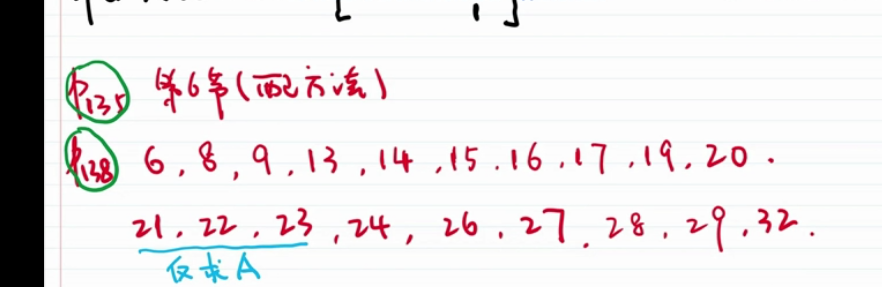 P135 第6节(配方法)
P138 6, 8, 9, 13, 14, 15, 16, 17, 19, 20.
21, 22, 23, 24, 26, 27, 28, 29, 32.
仅求A